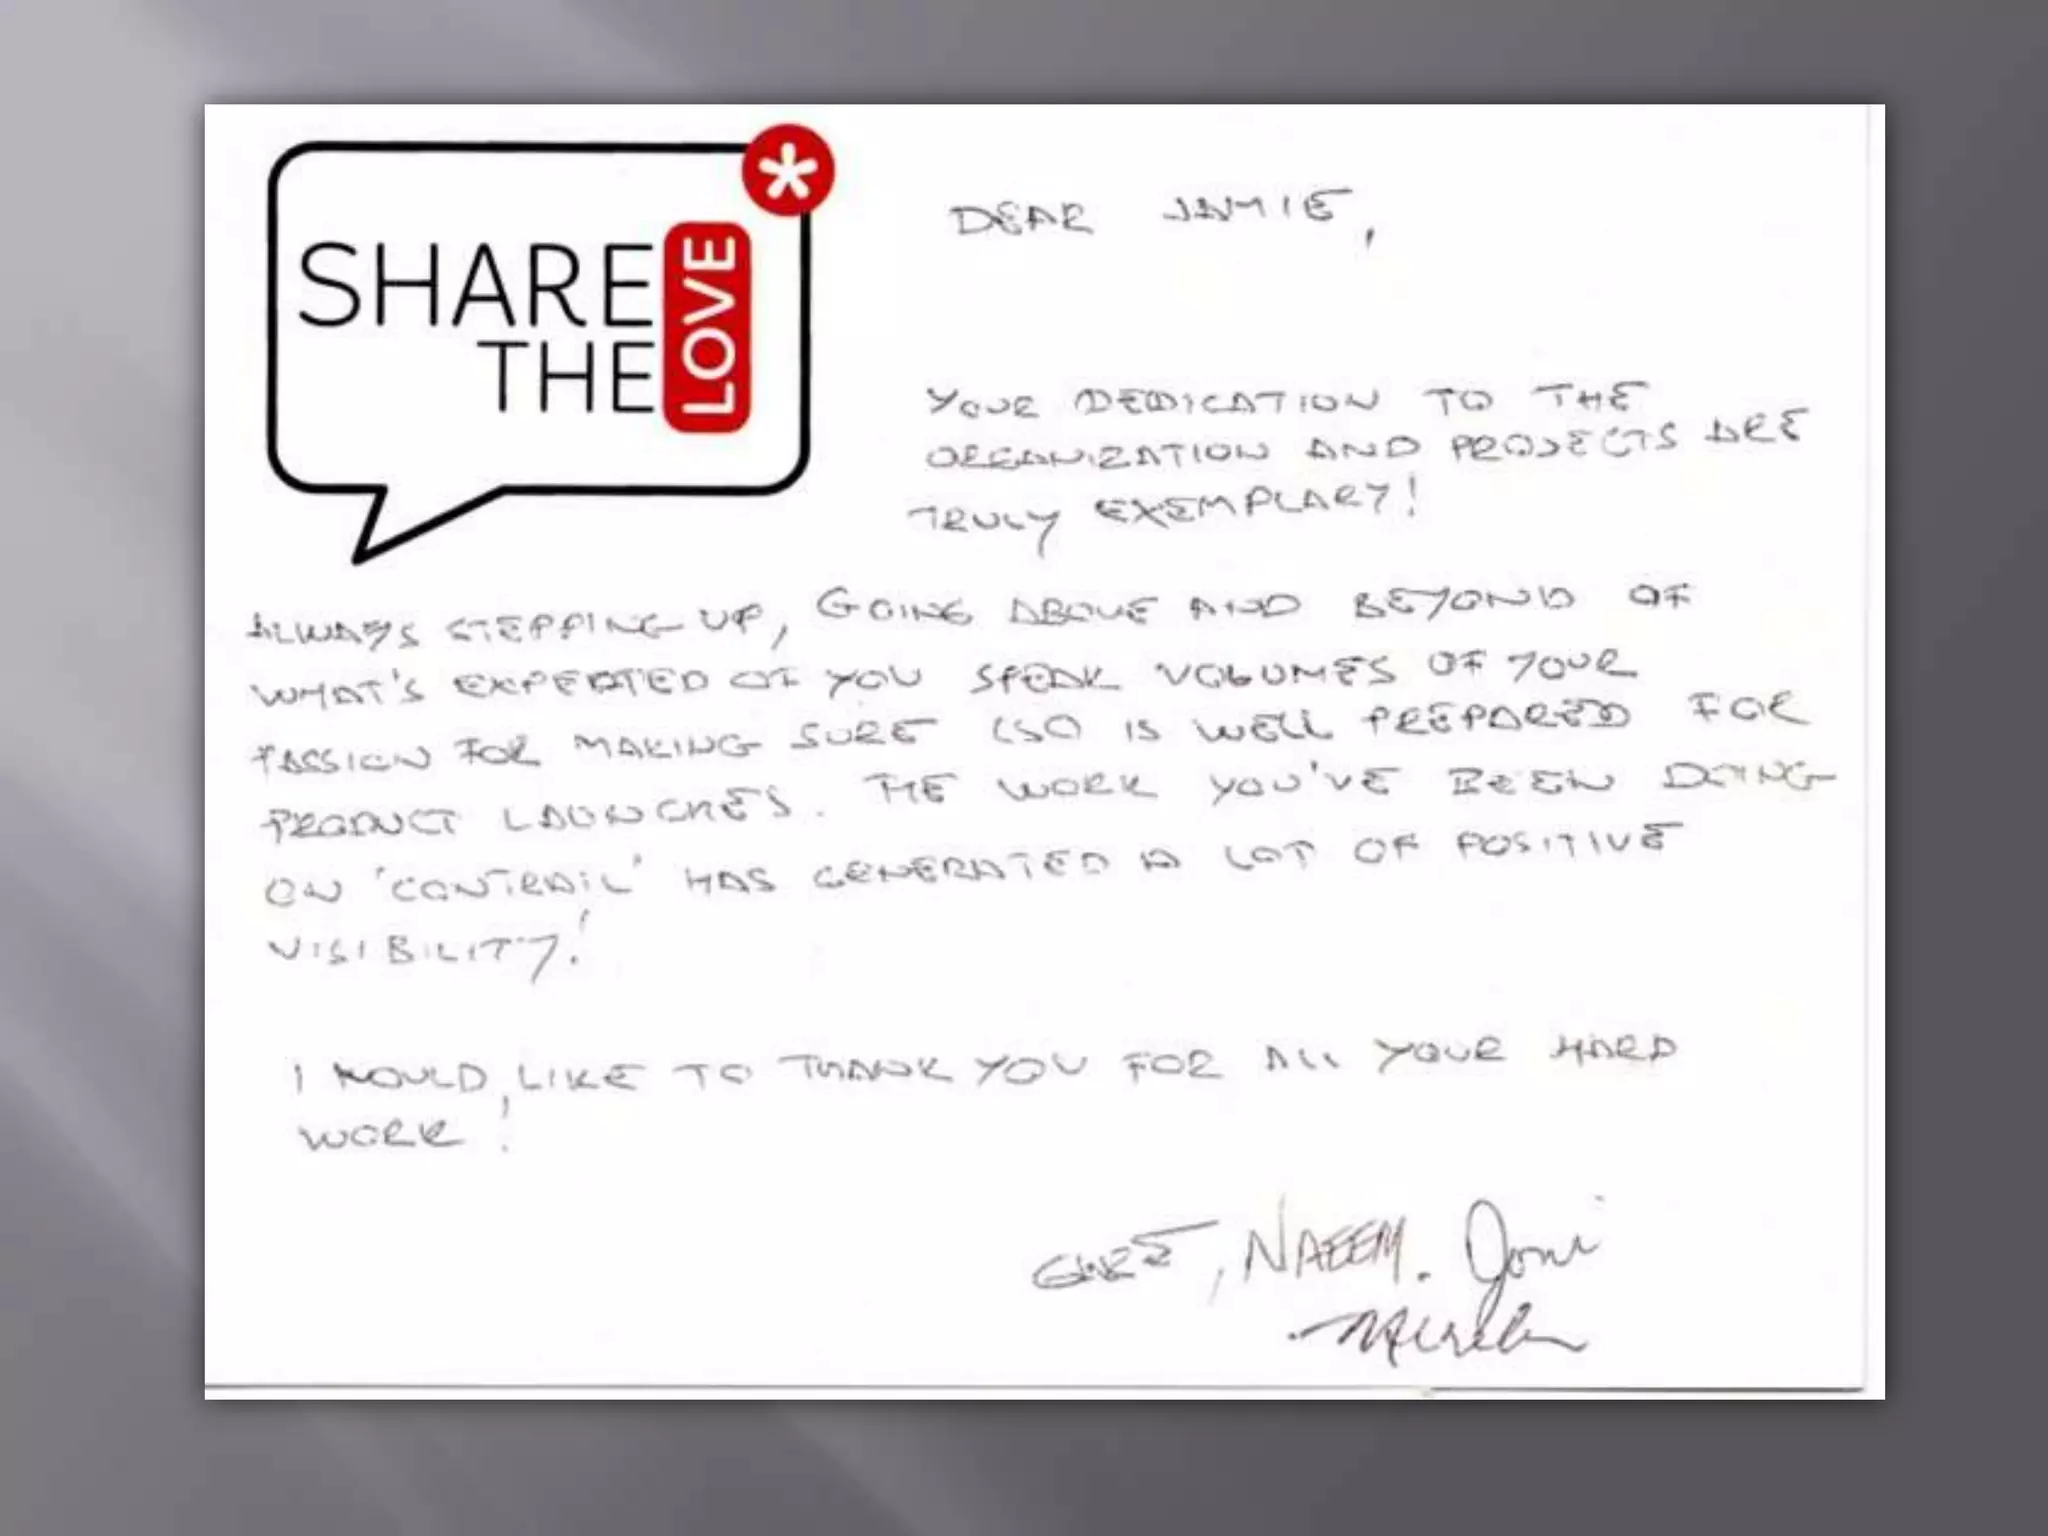 SHARE
THE
LOVE
*
DEAR JAMIE,
YOUR DEDICATION TO THE
ORGANIZATION AND PROJECTS ARE
TRULY EXEMPLARY!
ALWAYS STEPPING UP, GOING ABOVE AND BEYOND OF
WHAT'S EXPECTED OF YOU SPEAK VOLUMES OF YOUR
PASSION FOR MAKING SURE CSO IS WELL PREPARED FOR
PRODUCT LAUNCHES. THE WORK YOU'VE BEEN DOING
ON 'CONTRAIL' HAS GENERATED A LOT OF POSITIVE
VISIBILITY!
I WOULD LIKE TO THANK YOU FOR ALL YOUR HARD
WORK!
NAEEM. Joni